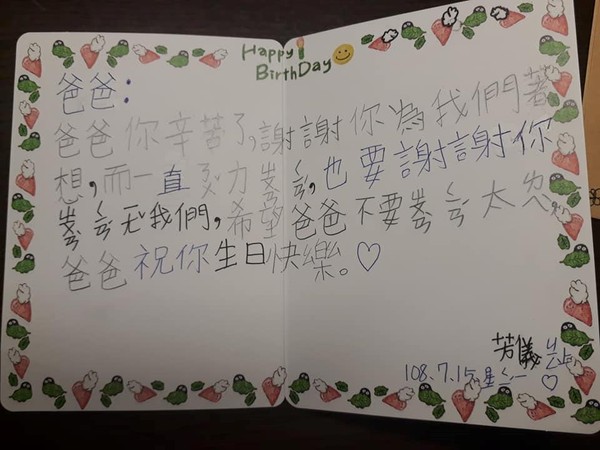 Happy
BirthDay
爸爸：
爸爸你辛苦了,謝謝你為我們著
想,而一直ㄋㄨˇ力,也要謝謝你
我們,希望爸爸不要太
爸爸祝你生日快樂。♡
芳儀
108.7.15星ㄑㄧ一♡